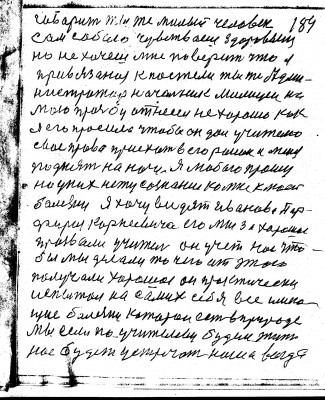 говорит ты же милый человек 184
сам собою чувствоеш здоровьем
но не хочеш мне поверит что я
привязаный к постели ты же Адми-
нистратор начальник милицеи на
мою прозбу отнесси не хорошо как
я его просил чтобы он дал учителю
свое право приехат в его район и меня
поднят на ноги. Я любого прошу
но у них нету сознания
болезни Я хочу видят Иванова Пор-
фирия Корнеевича его мы за хорошое
призвали учител он учет нас что-
бы мы делали то чего от этого
получали хорошое он практически
испытой на самих себя все имею-
щие болезни которои ест в природе
мы если по учителеву будем жит
нас будет устречат наша везде